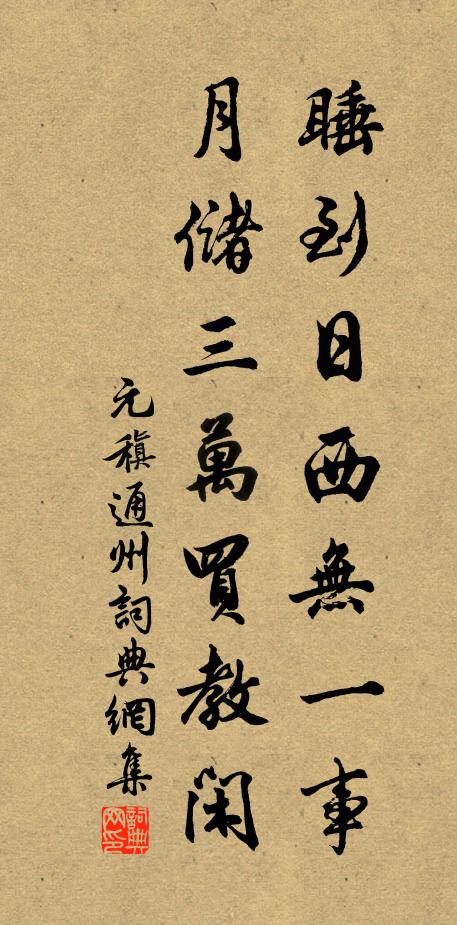 睡到日西無一事
月儲三萬買教閑
元稹通州詞典網集
詞典網印